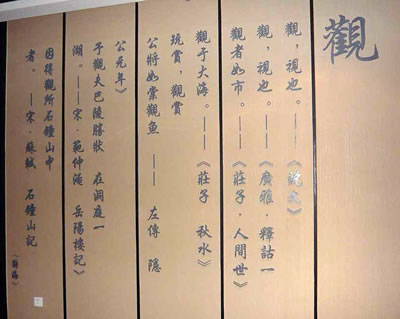 觀
觀，視也。——《說文》
觀，視也。——《廣雅·釋詁一
觀者如市。——《莊子，人間世》
觀于大海。——《莊子 秋水》
玩賞，觀賞
公將如棠觀魚 —— 左傳 隱
公元年）
予觀夫巴陵勝狀 在洞庭一
湖。——宋·範仲淹 岳陽樓記》
因得觀所石鐘山中
者。——宋·蘇軾 石鐘山記
《辭海》